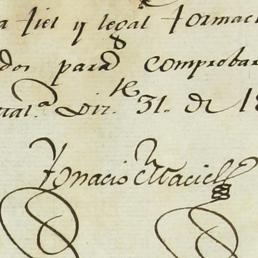 a fiel y legal formac
dos para comprobar
tral.ª Dic.re 31. de 18
Ignacio Maciel